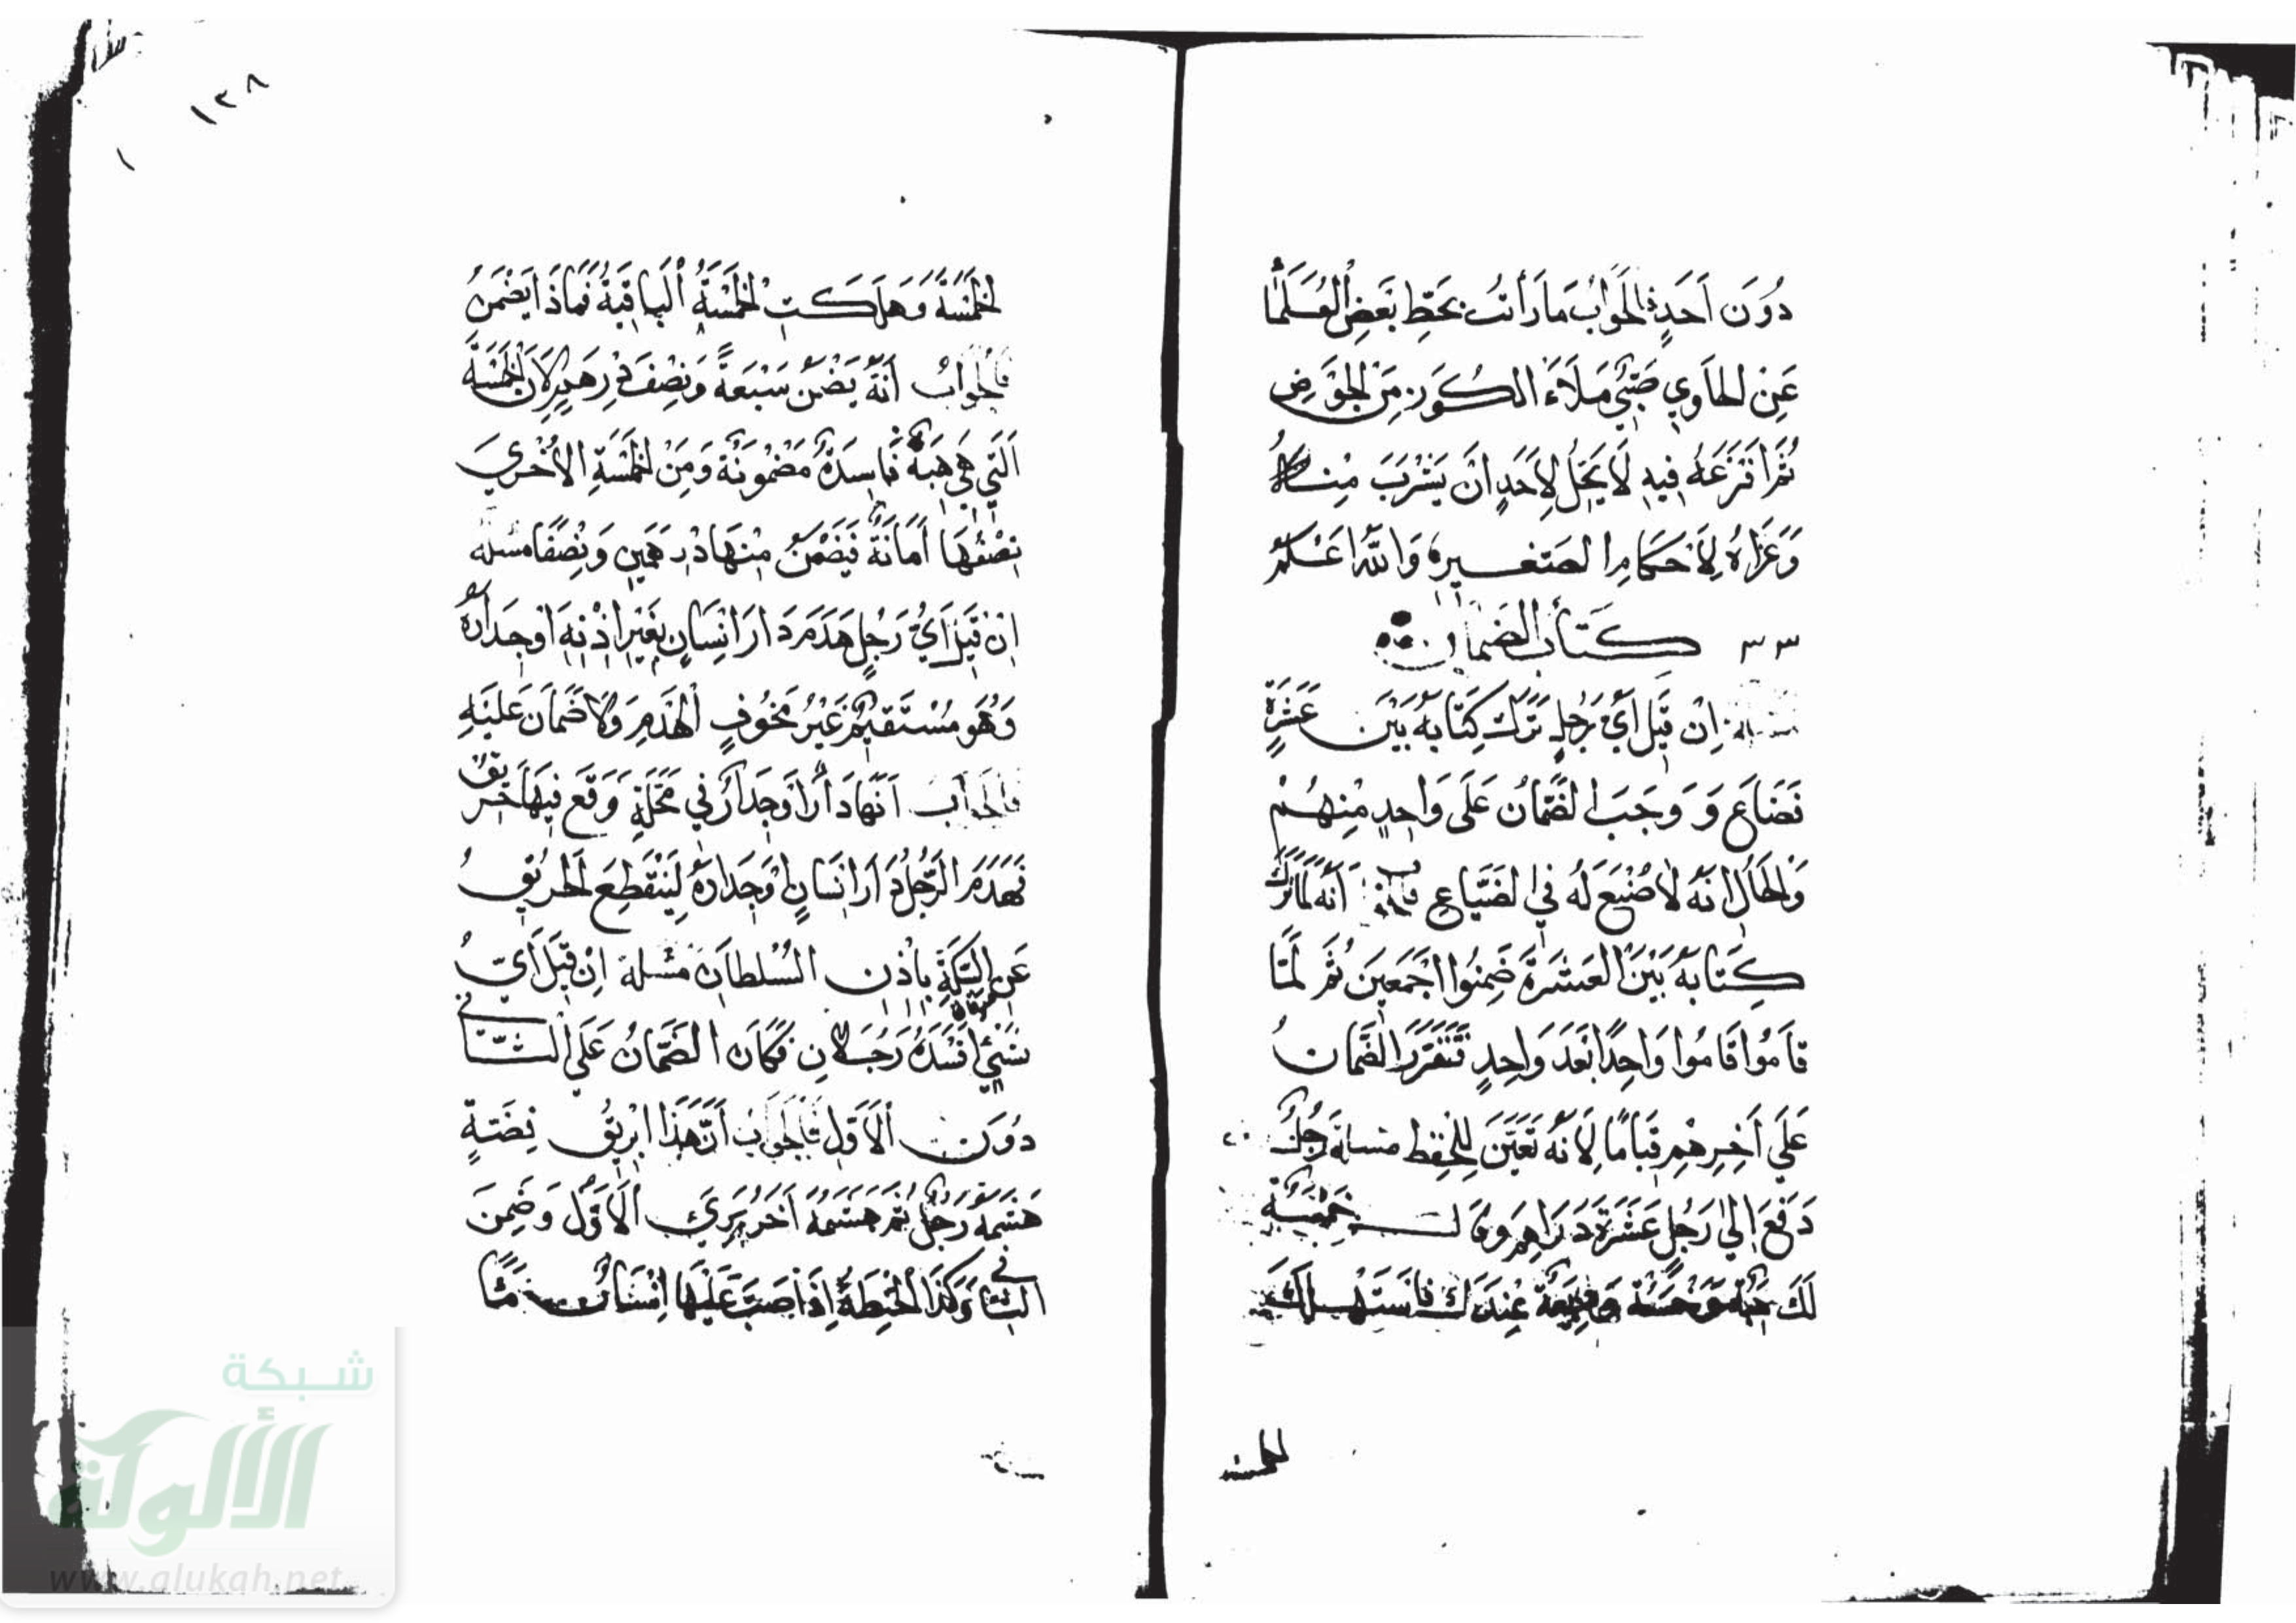 دُونَ اَحَدٍ فالجَوَابُ مَا رَأَيْتُ بِخَطِّ بَعْضِ العُلَمَا
عَنِ الحَاوِي صَبِيٌّ مَلَاءَ الكُوزَ مِنَ الحَوْضِ
ثُمَّ اَفْرَغَهُ فِيهِ لَا يَحِلُّ لِاَحَدٍ اَنْ يَشْرَبَ مِنْهُ
وَعَزَاهُ لِاَحْكَامِ الصَغِيرِ وَاللّهُ اَعْلَمُ
كِتَابُ الضَمَانِ
مسئلة اِنْ قِيلَ اَيُّ رَجُلٍ تَرَكَ كِتَابَهُ بَيْنَ عَشَرَةٍ
فَضَاعَ وَ وَجَبَ الضَّمَانُ عَلَى وَاحِدٍ مِنْهُمْ
وَالحَالُ اَنَّهُ لَا صُنْعَ لَهُ فِي الضَيَاعِ فالجواب اَنَّهُ لَمَّا تَرَكَ
كِتَابَهُ بَيْنَ العَشَرَةِ ضَمِنُوا اَجْمَعِينَ ثُمَّ لَمَّا
قَامُوا قَامُوا وَاحِدًا بَعْدَ وَاحِدٍ تَقَرَّرَ الضَّمَانُ
عَلَى اَخِرِهِمْ قِيَامًا لِاَنَّهُ تَعَيَّنَ لِلْحِفْظِ مسئلة رَجُلٌ
دَفَعَ اِلَى رَجُلٍ عَشَرَةَ دَرَاهِمَ وقال خَمْسَةٌ
لَكَ هبة وَخَمْسَةٌ وَدِيعَةٌ عِنْدَكَ فَاسْتَهْلَكَ
الخمسة
١٣٨
الخَمْسَةَ وَهَلَكَتِ الخَمْسَةُ البَاقِيَةُ فَمَاذَا يَضْمَنُ
فالجَوابُ اَنَّهُ يَضْمَنُ سَبْعَةً وَنِصْفَ دِرْهَمٍ لِاَنَّ الخَمْسَةَ
الَتِي هِيَ هِبَةٌ فَاسِدَةٌ مَضْمُونَةٌ وَمِنَ الخَمْسَةِ الاُخْرَى
نِصْفُهَا اَمَانَةٌ فَيَضْمَنُ مِنْهَا دِرْهَمَيْنِ وَنِصْفًا مسئلة
اِنْ قِيلَ اَيُّ رَجُلٍ هَدَمَ دَارَ اِنْسَانٍ بِغَيْرِ اِذْنِهِ اَوْ جِدَارَهُ
وَهُوَ مُسْتَقِيمٌ غَيْرُ مَخُوفِ الهَدْمِ وَلَا ضَمَانَ عَلَيْهِ
فالجَوابُ اَنَّهَا دَارٌ اَوْ جِدَارٌ فِي مَحَلَّةٍ وَقَعَ فِيهَا حَرِيقٌ
فَهَدَمَ الرَّجُلُ دَارَ اِنْسَانٍ اَوْ جِدَارَهُ لِيَنْقَطِعَ الحَرِيقُ
عَنِ السِّكَّةِ بِاِذْنِ السُلْطَانِ مسئلة اِنْ قِيلَ اَيُّ
شَيْءٍ اَفْسَدَهُ رَجُلَانِ فَكَانَ الضَّمَانُ عَلَى الثَّانِي
دُونَ الاَوَّلِ فَالجَوَابُ اَنَّ هَذَا اِبْرِيقُ فِضَّةٍ
هَشَمَهُ رَجُلٌ ثُمَّ هَشَمَهُ اَخَرُ بَرِيَ الاَوَّلُ وَضَمِنَ
الثَانِي وَكَذَا الحِنْطَةُ اِذَا صَبَّ عَلَيْهَا اِنْسَانٌ مَاءً
شبكة
الألوكة
www.alukah.net